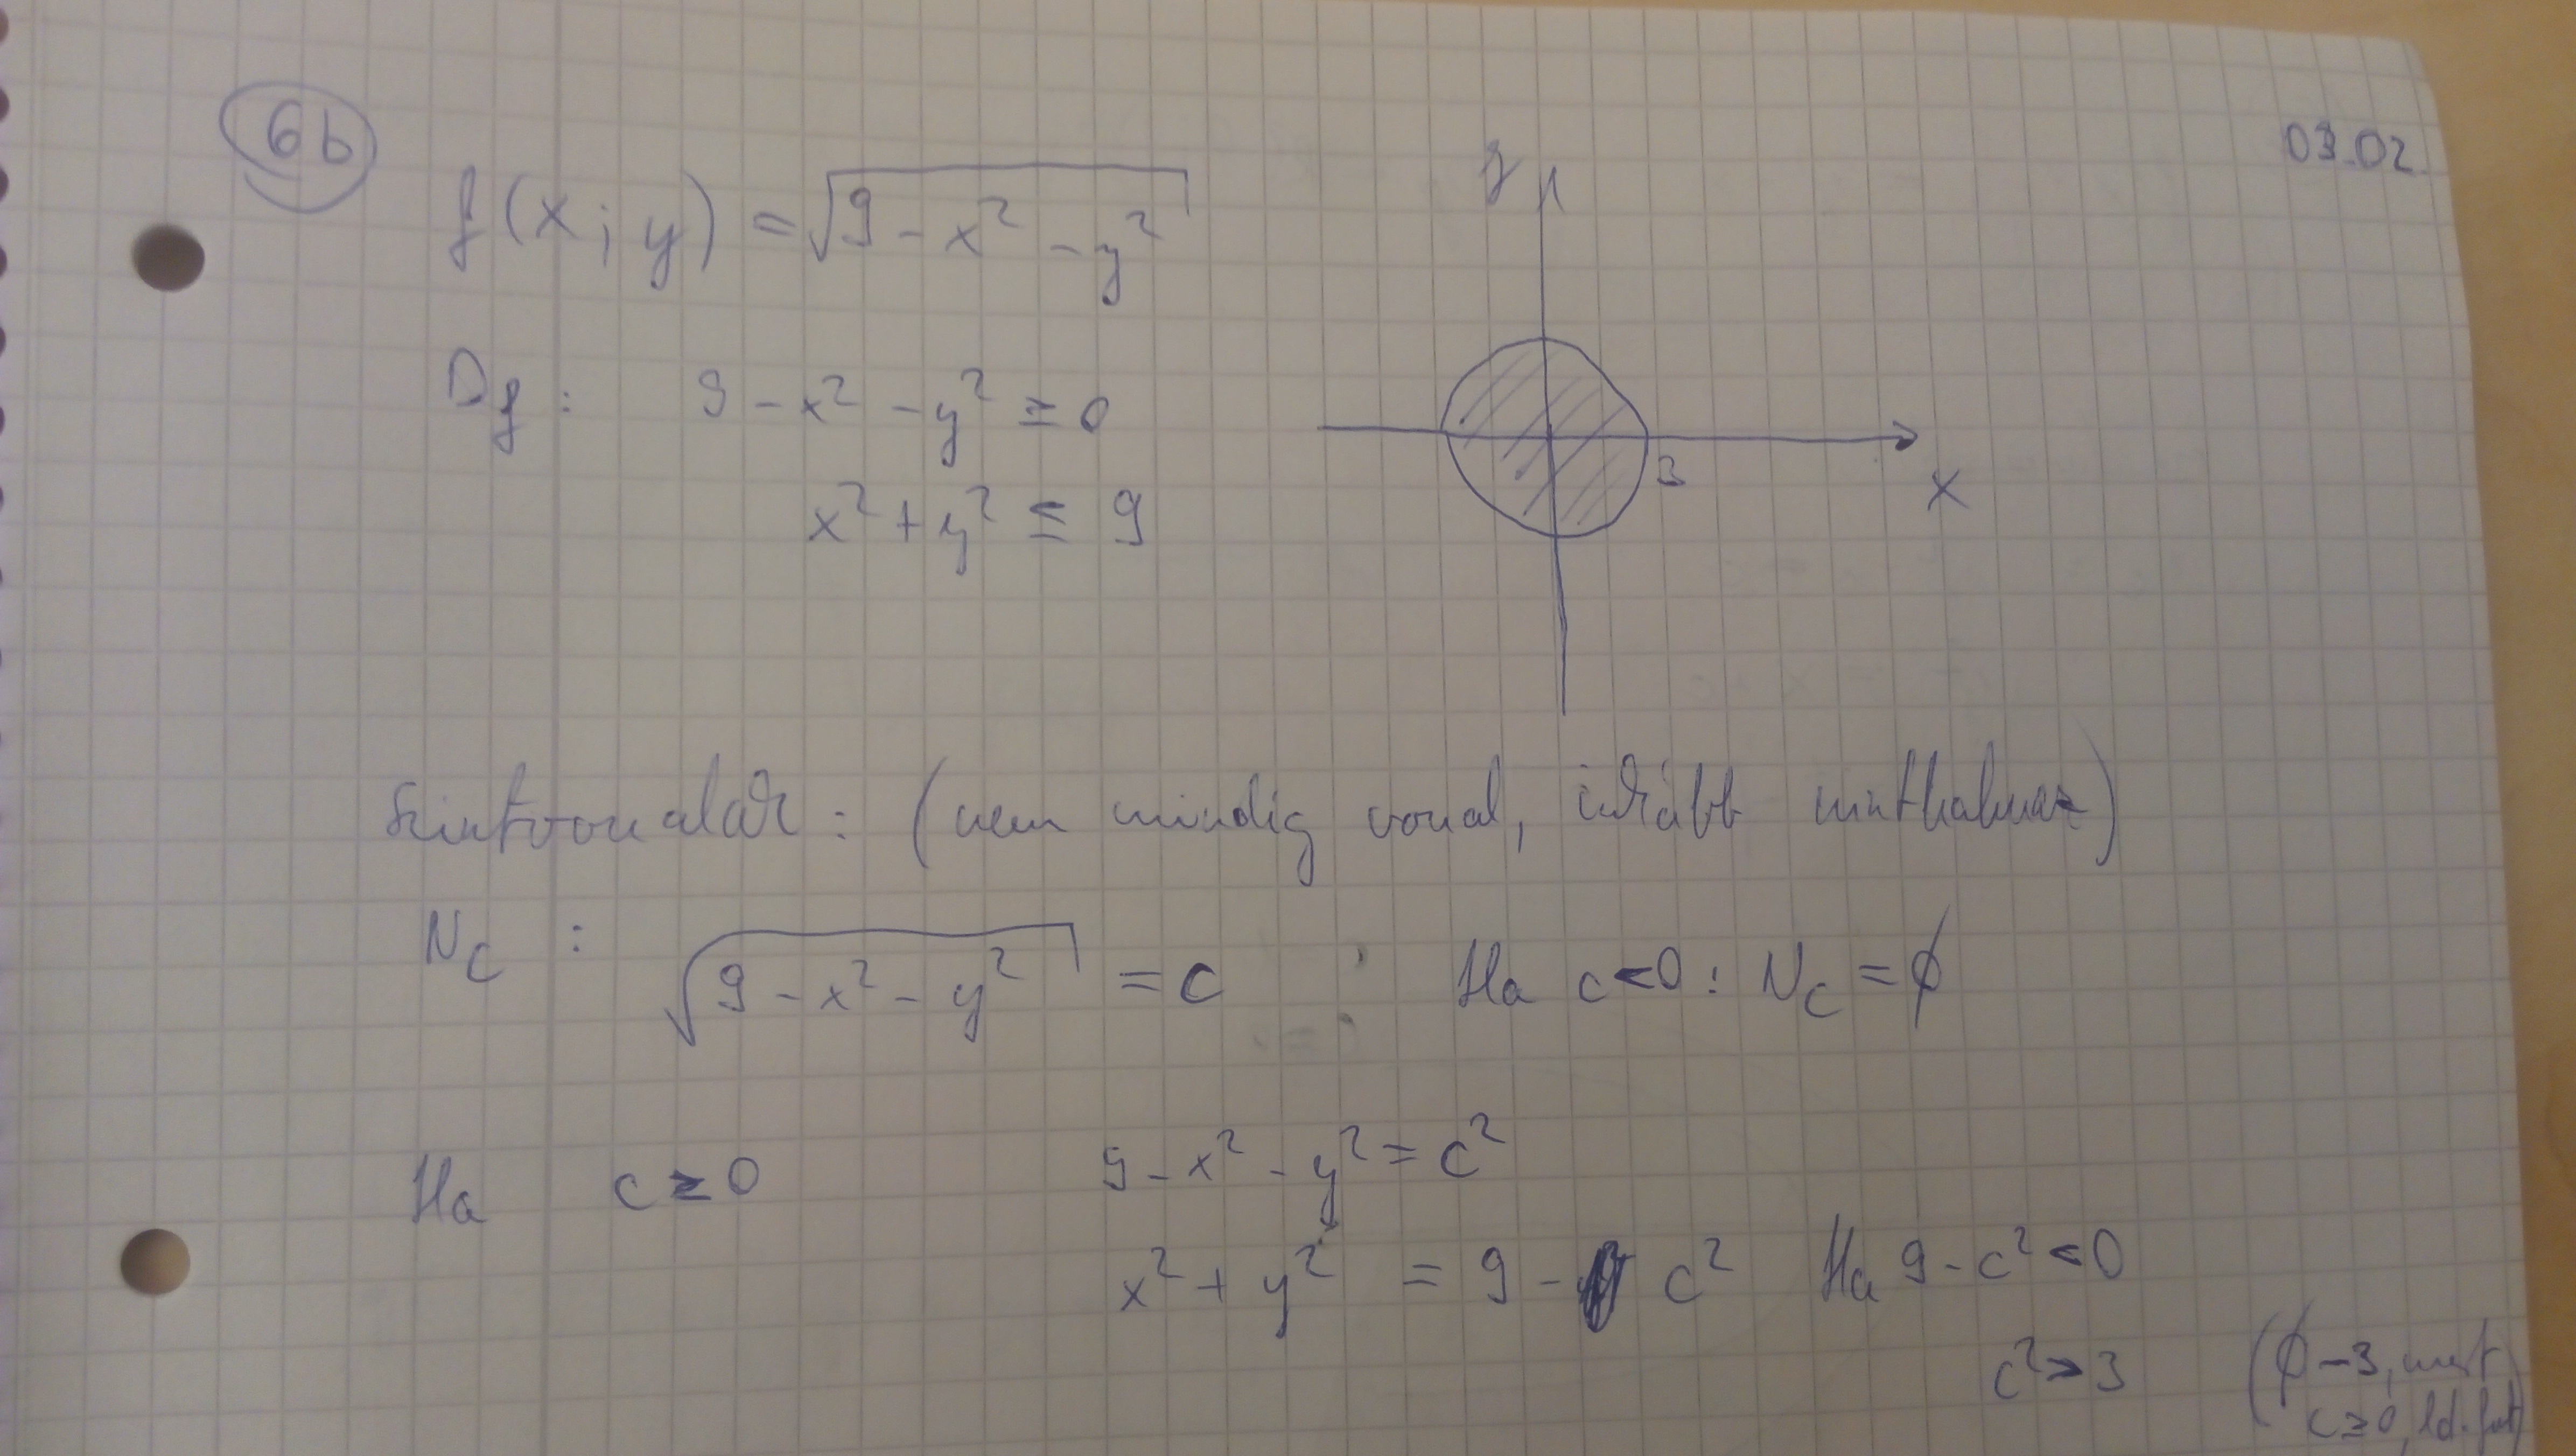 6b
03.02.
f(x; y) = √9 - x² - y²
y
Df: 9 - x² - y² ≥ 0
3
x
x² + y² ≤ 9
Szintvonalak: (nem mindig vonal, inkább ponthalmaz)
Nc : √9 - x² - y² = c Ha c<0: Nc = ∅
Ha c ≥ 0 9 - x² - y² = c²
x² + y² = 9 - c² Ha 9 - c² < 0
c² > 3 (∅ -3, mert
c ≥ 0, ld. fent)